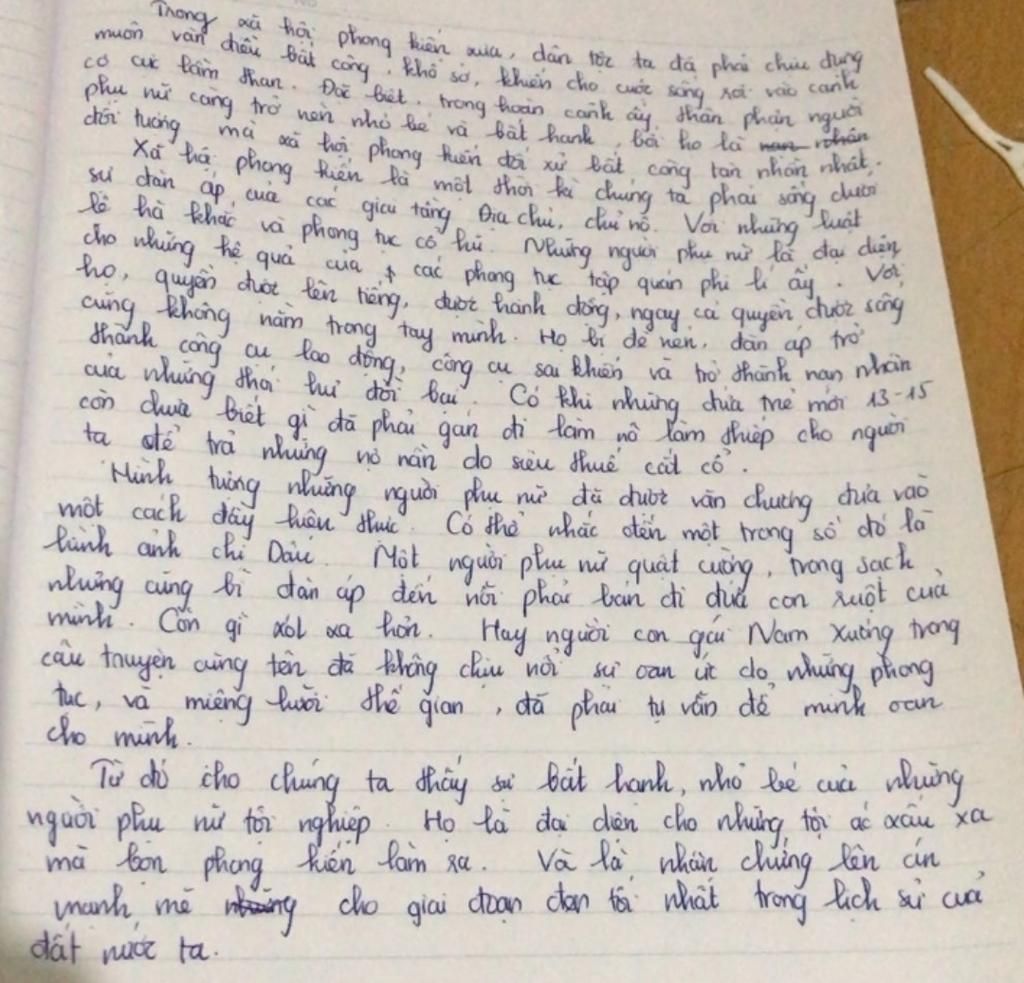 Trong xã hội phong kiến xưa, dân tộc ta đã phải chịu đựng
muôn vàn điều bất công, khổ sở, khiến cho cuộc sống rơi vào cảnh
cơ cực lầm than. Đặc biệt, trong hoàn cảnh ấy, thân phận người
phụ nữ càng trở nên nhỏ bé và bất hạnh, bởi họ là nạn nhân
đối tượng mà xã hội phong kiến đối xử bất công tàn nhẫn nhất.
Xã hội phong kiến là một thời kì chúng ta phải sống dưới
sự đàn áp của các giai tầng Địa chủ, chủ nô. Với những luật
lệ hà khắc và phong tục cổ hủ. Những người phụ nữ là đại diện
cho những hệ quả của các phong tục tập quán phi lí ấy. Với
họ, quyền được lên tiếng, được hành động, ngay cả quyền được sống
cũng không nằm trong tay mình. Họ bị đè nén, đàn áp trở
thành công cụ lao động, công cụ sai khiến và trở thành nạn nhân
của những thói hư đời bại. Có khi những đứa trẻ mới 13-15
còn chưa biết gì đã phải gán đi làm nô làm thiếp cho người
ta để trả những nợ nần do siêu thuế cắt cổ.
Hình tượng những người phụ nữ đã được văn chương đưa vào
một cách đầy hiện thực. Có thể nhắc đến một trong số đó là
hình ảnh chị Dậu. Một người phụ nữ quật cường, trong sạch
nhưng cũng bị đàn áp đến nỗi phải bán đi đứa con ruột của
mình. Còn gì xót xa hơn. Hay người con gái Nam Xương trong
câu truyện cùng tên đã không chịu nổi sự oan ức do những phong
tục, và miệng lưỡi thế gian, đã phải tự vẫn để minh oan
cho mình.
Từ đó cho chúng ta thấy sự bất hạnh, nhỏ bé của những
người phụ nữ tội nghiệp. Họ là đại diện cho những tội ác xấu xa
mà bọn phong kiến làm ra. Và là nhân chứng lên án
mạnh mẽ những cho giai đoạn đen tối nhất trong lịch sử của
đất nước ta.